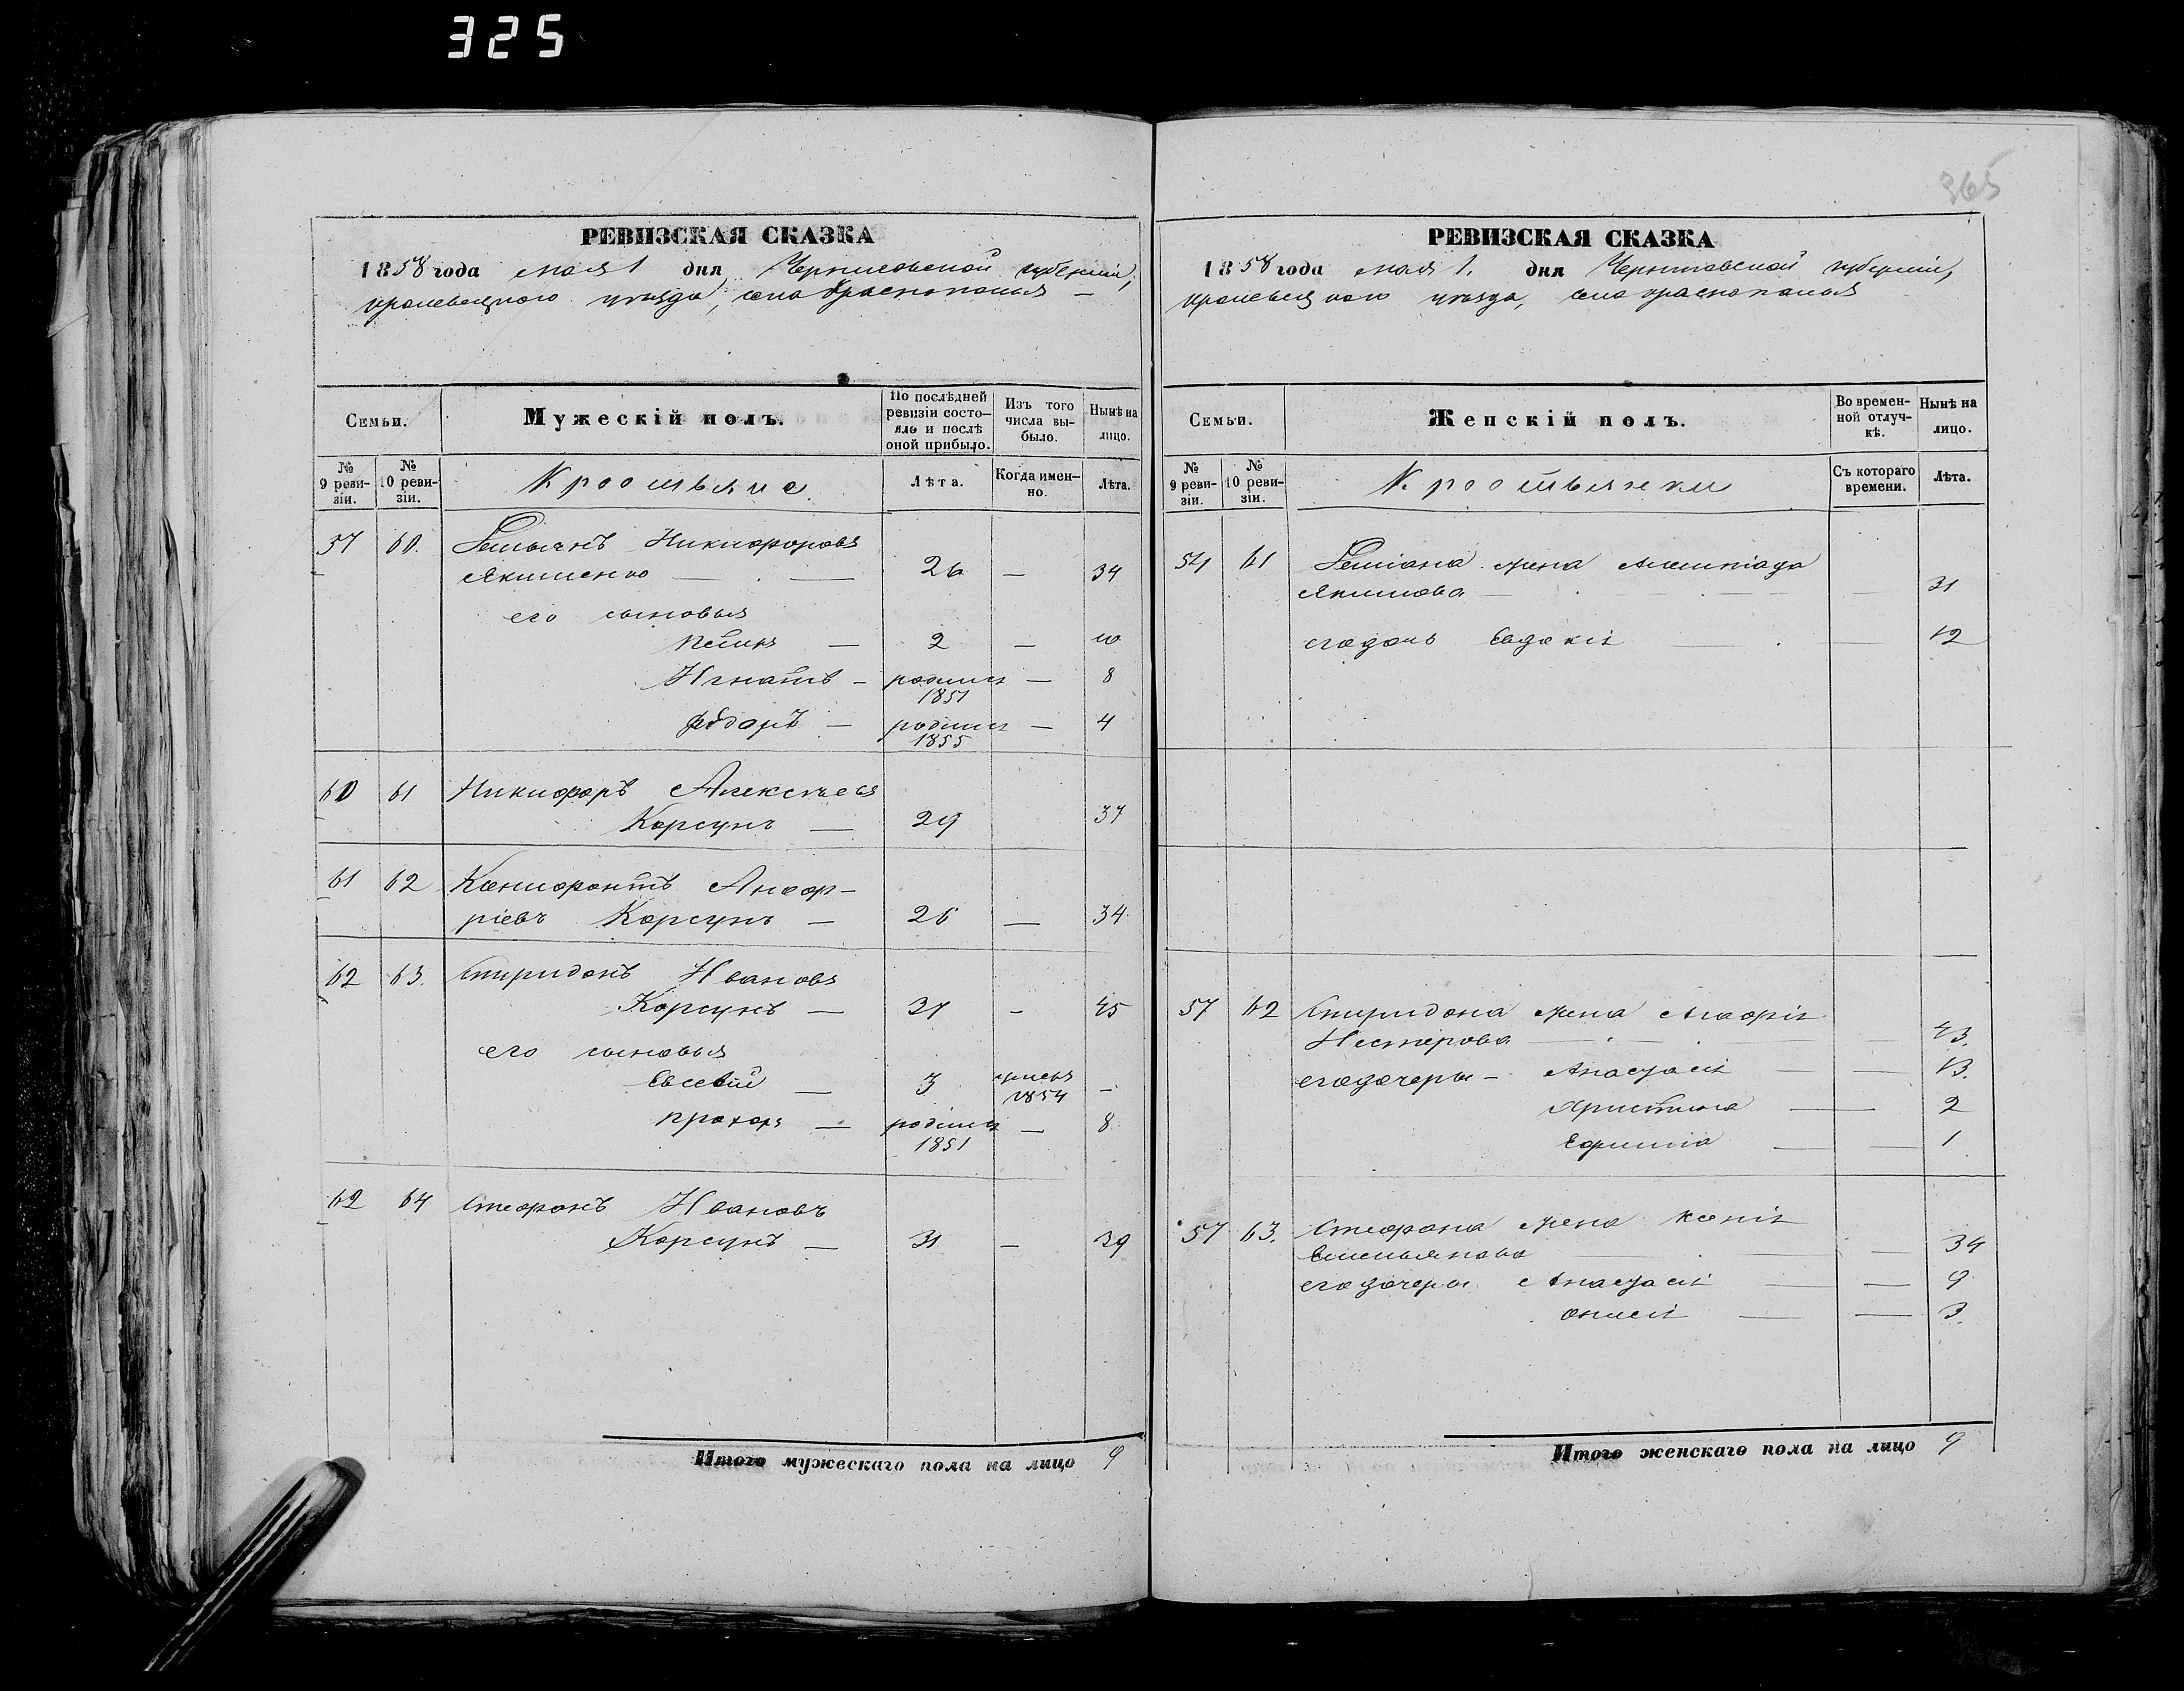 325
РЕВИЗСКАЯ СКАЗКА
1858 года мая 1 дня Черниговской губерніи,
кролевецкаго уѣзда, села Краснополья —
Семьи.
Мужескій полъ.
По послѣдней ревизіи состояло и послѣ оной прибыло.
Изъ того числа выбыло.
Нынѣ на лицо.
№ 9 ревизіи.
№ 10 ревизіи.
Крестьяне
Лѣта.
Когда именно.
Лѣта.
57 60. Демьянъ Никифоровъ
Якименко — 26 — 34
его сыновья
2 — 10
Игнатъ — родился 1851 — 8
Ѳедоръ — родился 1855 — 4
60 61 Никифоръ Алексѣевъ
Корсунъ — 29 37
61 62 Ксенофонтъ
Корсунъ — 26 — 34
62 63. Спиридонъ Ивановъ
Корсунъ — 37 — 45
его сыновья
Евсевій — 3 умеръ 1854 —
Прохоръ — родился 1851 — 8
62 64 Стефанъ Ивановъ
Корсунъ — 31 — 39
Итого мужескаго пола на лицо 9
365
РЕВИЗСКАЯ СКАЗКА
1858 года мая 1. дня Черниговской губерніи,
кролевецкаго уѣзда, села краснополья
Семьи.
Женскій полъ.
Во временной отлучкѣ.
Нынѣ на лицо.
№ 9 ревизіи.
№ 10 ревизіи.
Крестьянки
Съ котораго времени.
Лѣта.
54 61 Деміана жена
Якимова — 31
его дочь Евдокія — 12
57 62 Спиридона жена Агафія
Нестерова — 43.
его дочери — Анастасія — 13.
Христина — 2
Ефимія — 1
57 63. Стефана жена Ксенія
Емельянова 34
его дочери Анастасія — 9
Онисія — 3.
Итого женскаго пола на лицо 9